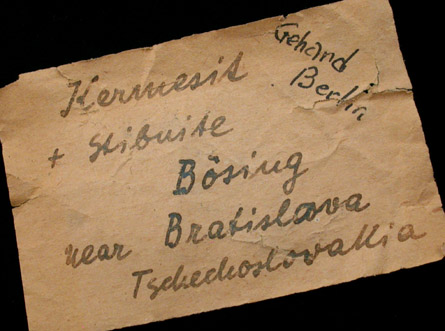 Kermesit
+ Stibnite
Bösing
near Bratislava
Tschechoslovakia
Gehand
Berlin